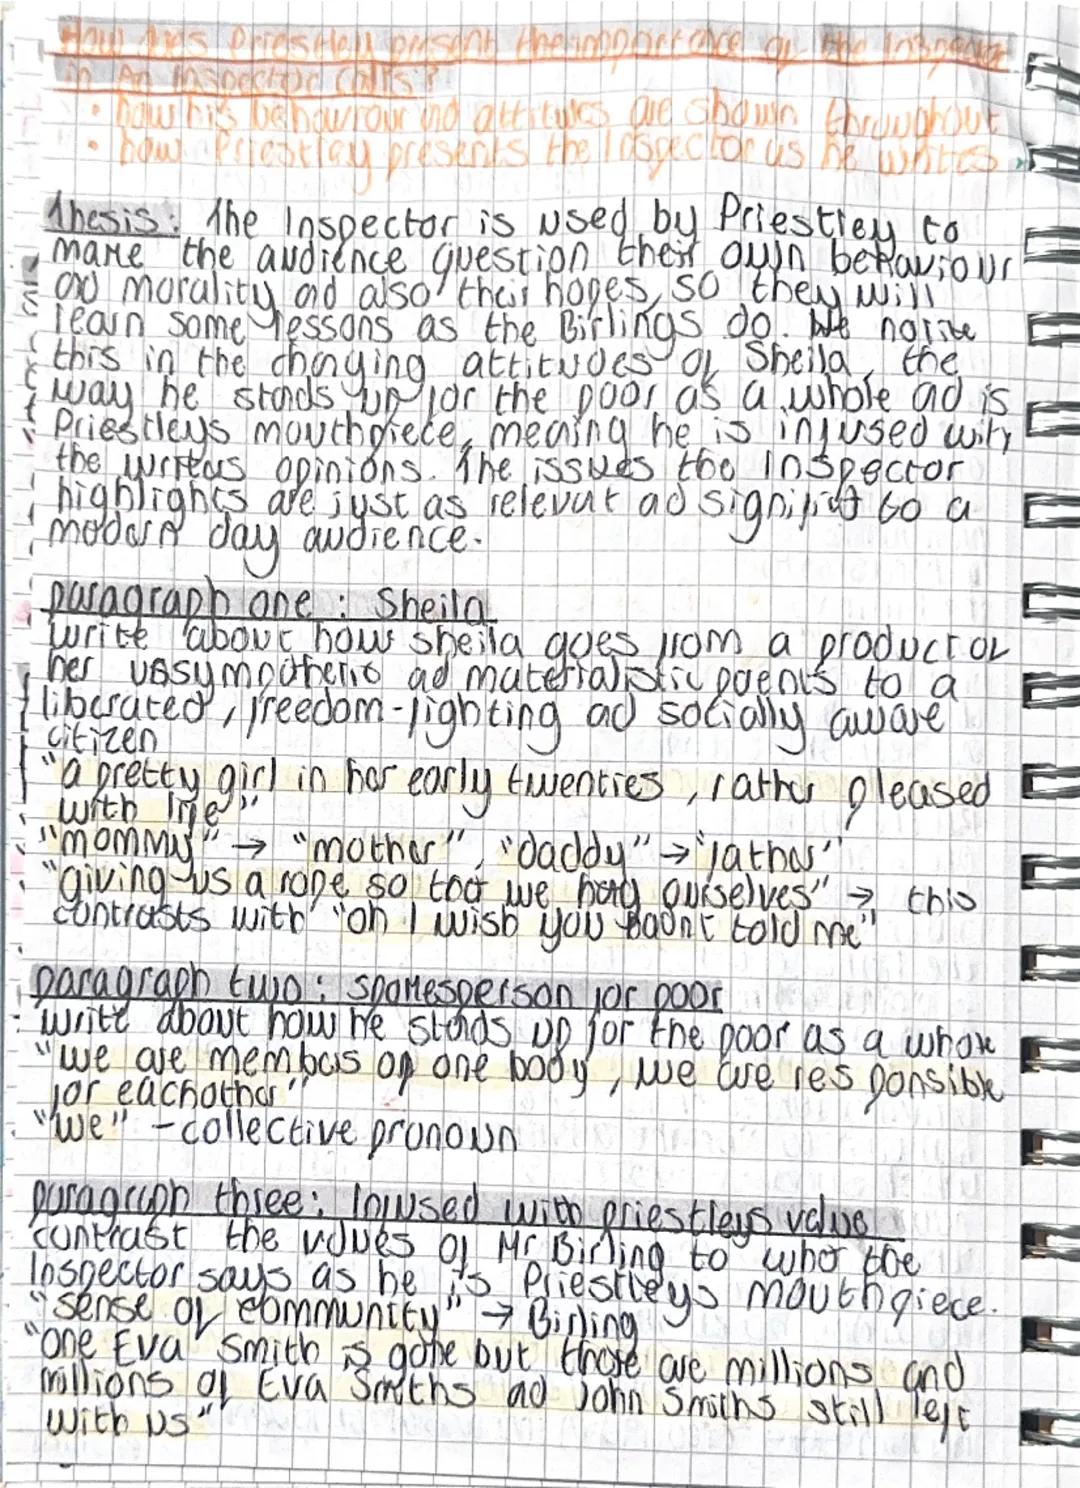 How does Priestley present the importance of the Inspector
in An Inspector Calls?
• how his behaviour ad attitudes are shown throughout
• how Priestley presents the Inspector as he writes
thesis: the Inspector is used by Priestley to
make the audience question their own behaviour
ad morality ad also their hopes, so they will
learn some lessons as the Birlings do. We notice
this in the changing attitudes of Sheila, the
way he stads up for the poor as a whole ad is
Priestleys mouthpiece, meaning he is infused with
the writers opinions. The issues the Inspector
highlights are just as relevat ad significat to a
modern day audience.
paragraph one : Sheila
write about how sheila goes from a product of
her unsympathetic ad materialistic parents to a
liberated, freedom-fighting ad socially aware
citizen
"a pretty girl in her early twenties, rather pleased
with life"
"mommy" → "mother", "daddy" → "father"
"giving us a rope so that we hang ourselves" → this
contrasts with "oh I wish you hadnt told me"
paragraph two : spokesperson for poor
write about how he stands up for the poor as a whole
"we are members of one body, we are responsible
for eachother"
"we" - collective pronoun
paragraph three : infused with priestleys value
contrast the values of Mr Birling to what the
Inspector says as he is Priestleys mouthpiece.
"sense of community" → Birling
"one Eva Smith is gone but those are millions and
millions of Eva Smiths ad John Smiths still left
with us"